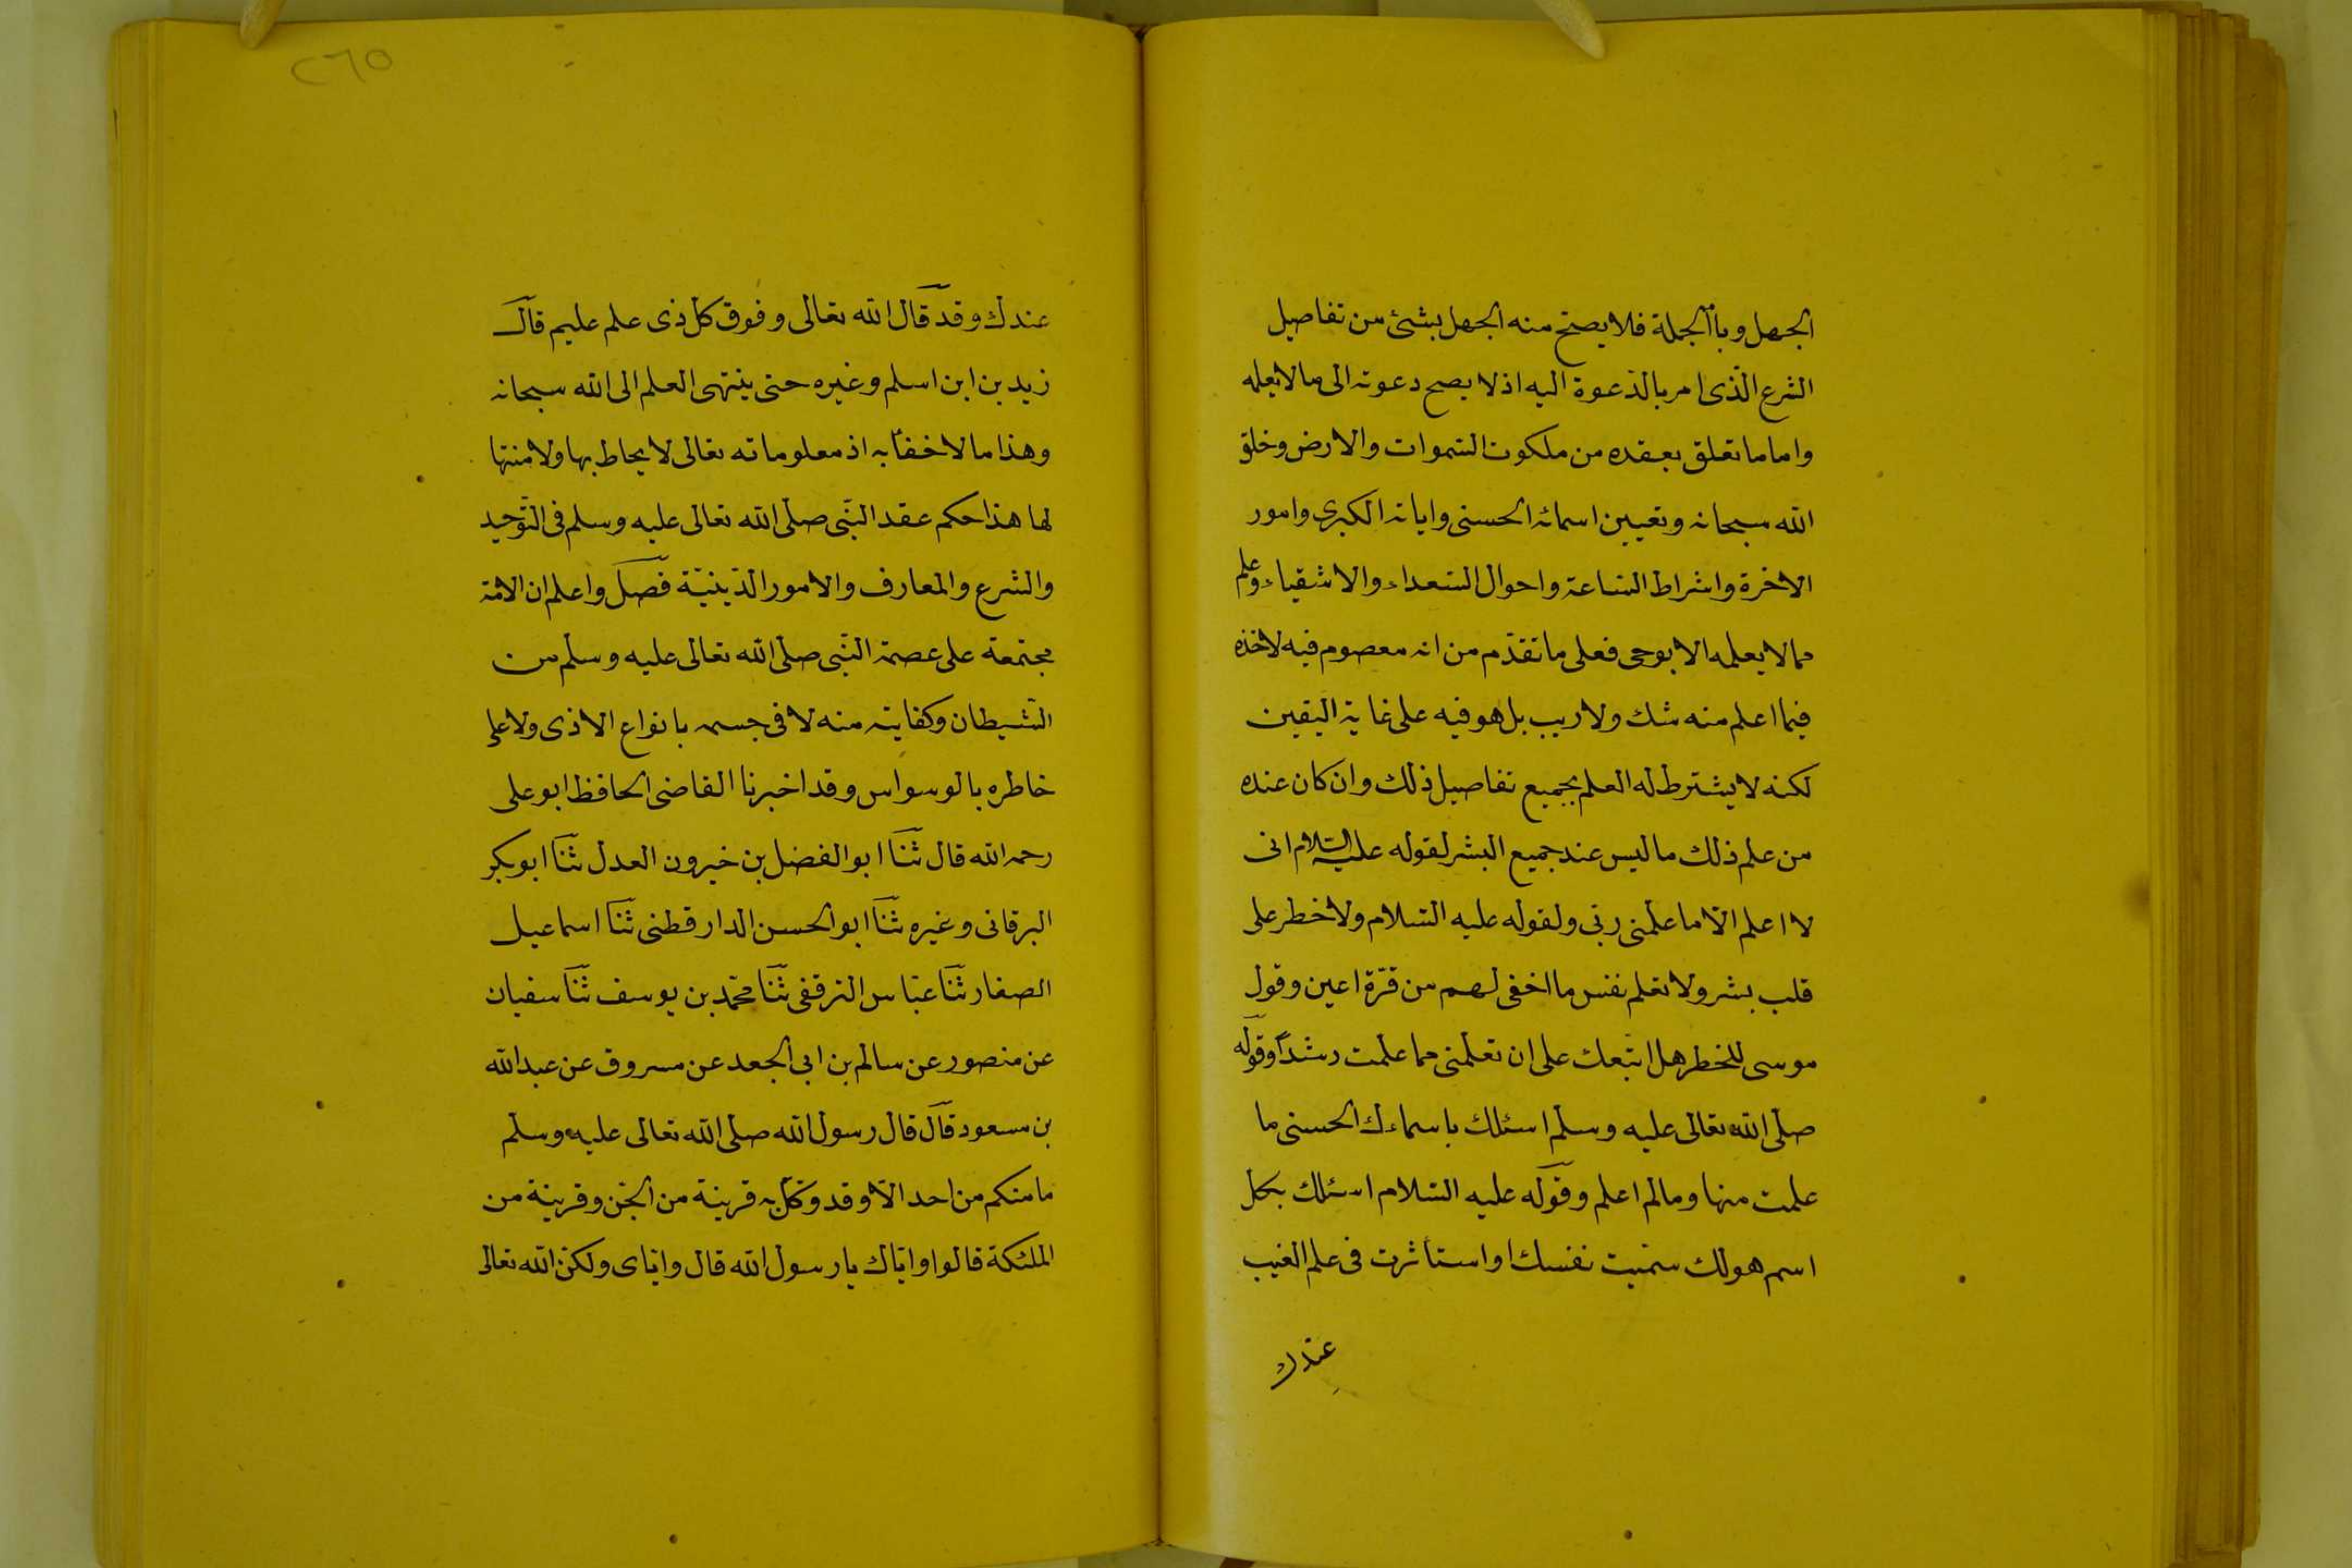 الجهل وبالجملة فلا يصح منه الجهل بشئ من تفاصيل
الشرع الّذى امر بالدّعوة اليه اذ لا يصح دعوته الى ما لا يعلمه
واما ما تعلق بعقده من ملكوت السّموات والارض وخلق
الله سبحانه وتعيين اسمائه الحسنى واياته الكبرى وامور
الاخرة واشراط السّاعة واحوال السّعداء والاشقياء وعلم
مما لا يعلمه الا بوحى فعلى ما تقدّم من انه معصوم فيه لاخذه
فيما اعلم منه شك ولا ريب بل هو فيه على غاية اليقين
لكنه لا يشترط له العلم بجميع تفاصيل ذلك وان كان عنده
من علم ذلك ما ليس عند جميع البشر لقوله عليه السّلام انى
لا اعلم الّا ما علّمنى ربّى ولقوله عليه السّلام ولا خطر على
قلب بشر ولا تعلم نفس ما اخفى لهم من قرّة اعين وقول
موسى للخطر هل اتّبعك على ان تعلّمنى مما علّمت رشداً وقوله
صلّى الله تعالى عليه وسلّم اسئلك باسماءك الحسنى ما
علمت منها وما لم اعلم وقوله عليه السّلام اسئلك بكل
اسم هو لك سمّيت نفسك او استأثرت فى علم الغيب
عندك
٢٦٥
عندك وقد قال الله تعالى وفوق كل ذى علم عليم قال
زيد بن ابن اسلم وغيره حتى ينتهى العلم الى الله سبحانه
وهذا ما لا خفأ به اذ معلوماته تعالى لا يحاط بها ولا منتها
لها هذا حكم عقد النّبى صلّى الله تعالى عليه وسلم فى التّوحيد
والشرع والمعارف والامور الدّينيّة فصل واعلم ان الامّة
مجتمعة على عصمة النّبى صلّى الله تعالى عليه وسلّم من
الشّيطان وكفايته منه لا فى جسمه بانواع الاذى ولا على
خاطره بالوسواس وقد اخبرنا القاضى الحافظ ابو على
رحمه الله قال ثنا ابو الفضل بن خيرون العدل ثنا ابو بكر
البرقانى وغيره ثنا ابو الحسن الدارقطنى ثنا اسماعيل
الصفار ثنا عبّاس الترقفى ثنا محمّد بن يوسف ثنا سفيان
عن منصور عن سالم بن ابى الجعد عن مسروق عن عبد الله
بن مسعود قال قال رسول الله صلّى الله تعالى عليه وسلّم
ما منكم من احد الّا وقد وكّل به قرينة من الجن وقرينة من
الملئكة قالوا وايّاك يا رسول الله قال وايّاى ولكن الله تعالى